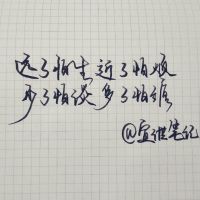 远了怕生近了怕烦
少了怕淡多了怕缠
笔记